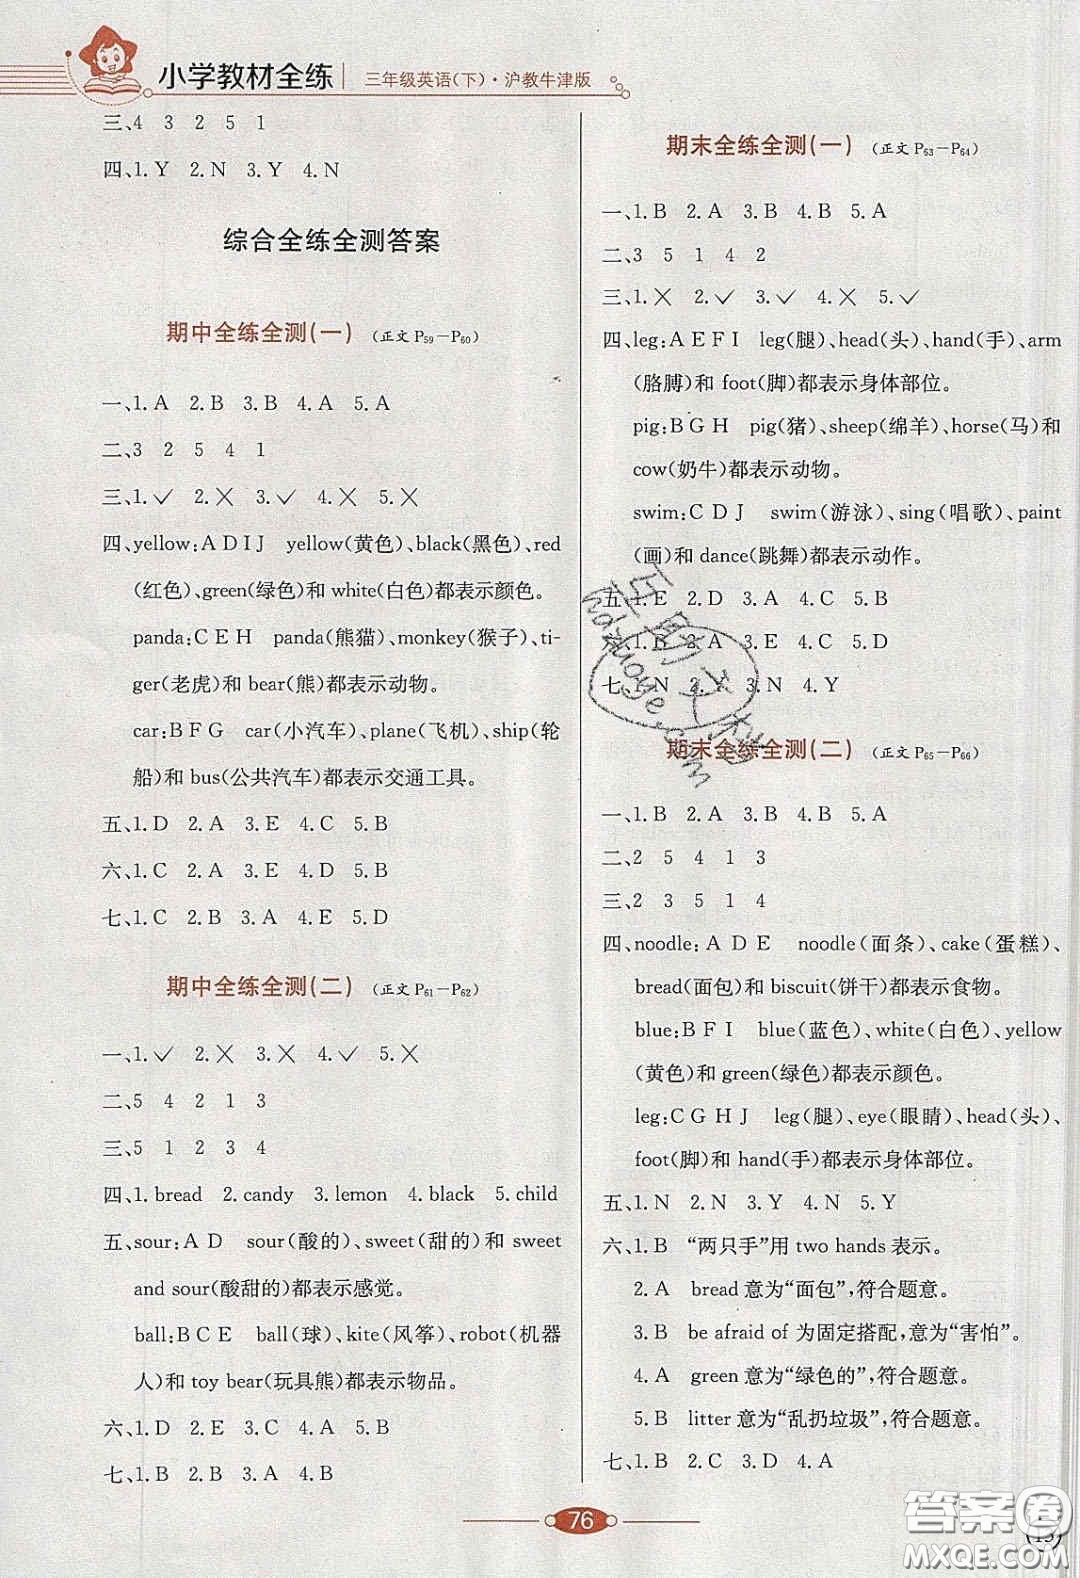 小学教材全练 三年级英语(下)·沪教牛津版
三、4 3 2 5 1
四、1. Y 2. N 3. Y 4. N
综合全练全测答案
期中全练全测(一) (正文 P59—P60)
一、1. A 2. B 3. B 4. A 5. A
二、3 2 5 4 1
三、1. ✓ 2. ✕ 3. ✓ 4. ✕ 5. ✕
四、yellow:A D I J yellow(黄色)、black(黑色)、red
(红色)、green(绿色)和 white(白色)都表示颜色。
panda:C E H panda(熊猫)、monkey(猴子)、ti-
ger(老虎)和 bear(熊)都表示动物。
car:B F G car(小汽车)、plane(飞机)、ship(轮
船)和 bus(公共汽车)都表示交通工具。
五、1. D 2. A 3. E 4. C 5. B
六、1. C 2. A 3. E 4. D 5. B
七、1. C 2. B 3. A 4. E 5. D
期中全练全测(二) (正文 P61—P62)
一、1. ✓ 2. ✕ 3. ✕ 4. ✓ 5. ✕
二、5 4 2 1 3
三、5 1 2 3 4
四、1. bread 2. candy 3. lemon 4. black 5. child
五、sour:A D sour(酸的)、sweet(甜的)和 sweet
and sour(酸甜的)都表示感觉。
ball:B C E ball(球)、kite(风筝)、robot(机器
人)和 toy bear(玩具熊)都表示物品。
六、1. D 2. E 3. C 4. A 5. B
七、1. B 2. B 3. A 4. B
期末全练全测(一) (正文 P63—P64)
一、1. B 2. A 3. B 4. B 5. A
二、3 5 1 4 2
三、1. ✕ 2. ✓ 3. ✓ 4. ✕ 5. ✓
四、leg:A E F I leg(腿)、head(头)、hand(手)、arm
(胳膊)和 foot(脚)都表示身体部位。
pig:B G H pig(猪)、sheep(绵羊)、horse(马)和
cow(奶牛)都表示动物。
swim:C D J swim(游泳)、sing(唱歌)、paint
(画)和 dance(跳舞)都表示动作。
五、1. E 2. D 3. A 4. C 5. B
六、1. B 2. A 3. E 4. C 5. D
七、1. N 2. Y 3. N 4. Y
期末全练全测(二) (正文 P65—P66)
一、1. B 2. A 3. B 4. B 5. A
二、2 5 4 1 3
三、2 3 5 1 4
四、noodle:A D E noodle(面条)、cake(蛋糕)、
bread(面包)和 biscuit(饼干)都表示食物。
blue:B F I blue(蓝色)、white(白色)、yellow
(黄色)和 green(绿色)都表示颜色。
leg:C G H J leg(腿)、eye(眼睛)、head(头)、
foot(脚)和 hand(手)都表示身体部位。
五、1. N 2. N 3. Y 4. N 5. Y
六、1. B “两只手”用 two hands 表示。
2. A bread 意为“面包”,符合题意。
3. B be afraid of 为固定搭配,意为“害怕”。
4. A green 意为“绿色的”,符合题意。
5. B litter 意为“乱扔垃圾”,符合题意。
七、1. B 2. C 3. D 4. A
76
答案卷
MXQE.COM